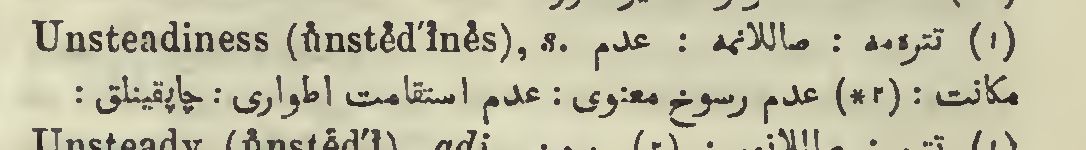 Unsteadiness (ŭnstĕd′ĭnĕs), s. (۱) تتره‌مه : صاللانمه : عدم
مكانت : (۲*) عدم رسوخ معنوی : عدم استقامت اطواری : چاپقینلق :
Unsteady (ŭnstĕd′ĭ), adj.